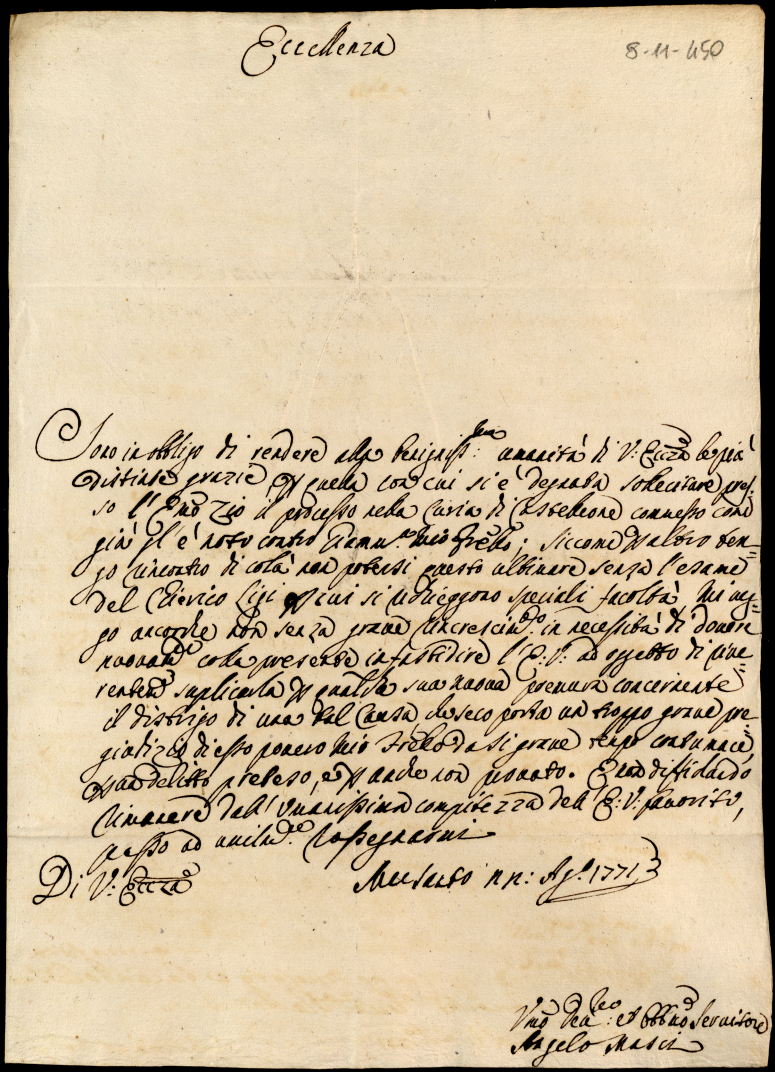 Eccellenza
8-11-450
Sono in obbligo di rendere alla benigniss:ma umanità di V: Ecc:za le più
distinte grazie p quella con cui si è degnata sollecitare pres-
so l'Emo Zio il processo nella Curia di commesso come
già gl'è noto contro mio Frello; siccome p altro ven-
go rincontro di colà non potersi questo ultimare senza l'esame
del Chierico Ligi p cui si richieggono speciali facoltà. Mi veg-
go ancorche non senza grave rincrescim:to in necessità di dovere
nuovam:te colla presente infastidire l'E: V: ad oggetto di rive-
rentem:e suplicarla p qualche sua nuova premura concernente
il distrigo di una tal Causa che seco porta un troppo grave pre-
giudizio di esso povero mio Frello da sì grave tempo contumace
p un delitto preteso, e p anche non provato. E non diffidando
rimanere dall'Umanissima compitezza dell'E: V: favorito,
passo ad umilm:te rassegnarmi
Di V: Ecc:za
Ago. 1771
Umo et Obblmo Servitore
Angelo Masci